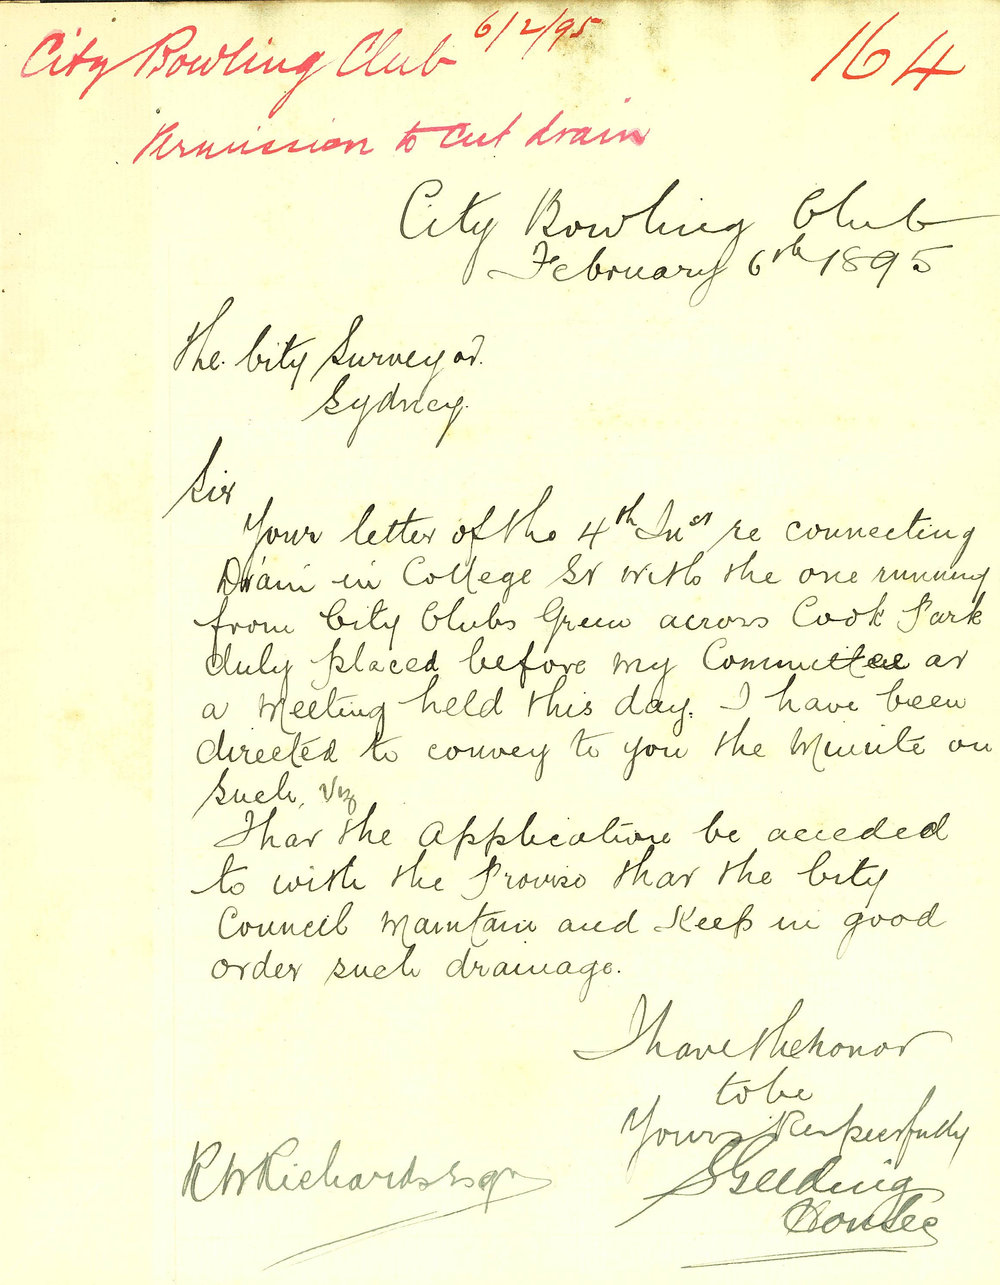 City Bowling Club 6/2/95
164
Permission to cut drain
City Bowling Club
February 6th 1895
The City Surveyor
Sydney.
Sir
Your letter of the 4th Inst re connecting
Drain in College St with the one running
from City Clubs Green across Cook Park
duly placed before my Committee at
a Meeting held this day. I have been
directed to convey to you the Minute on
such, Viz
That the Application be acceded
to with the Proviso that the City
Council Maintain and Keep in good
order such drainage.
I have the honor
to be
Yours Respectfully
Hon Sec
R W Richards Esqr